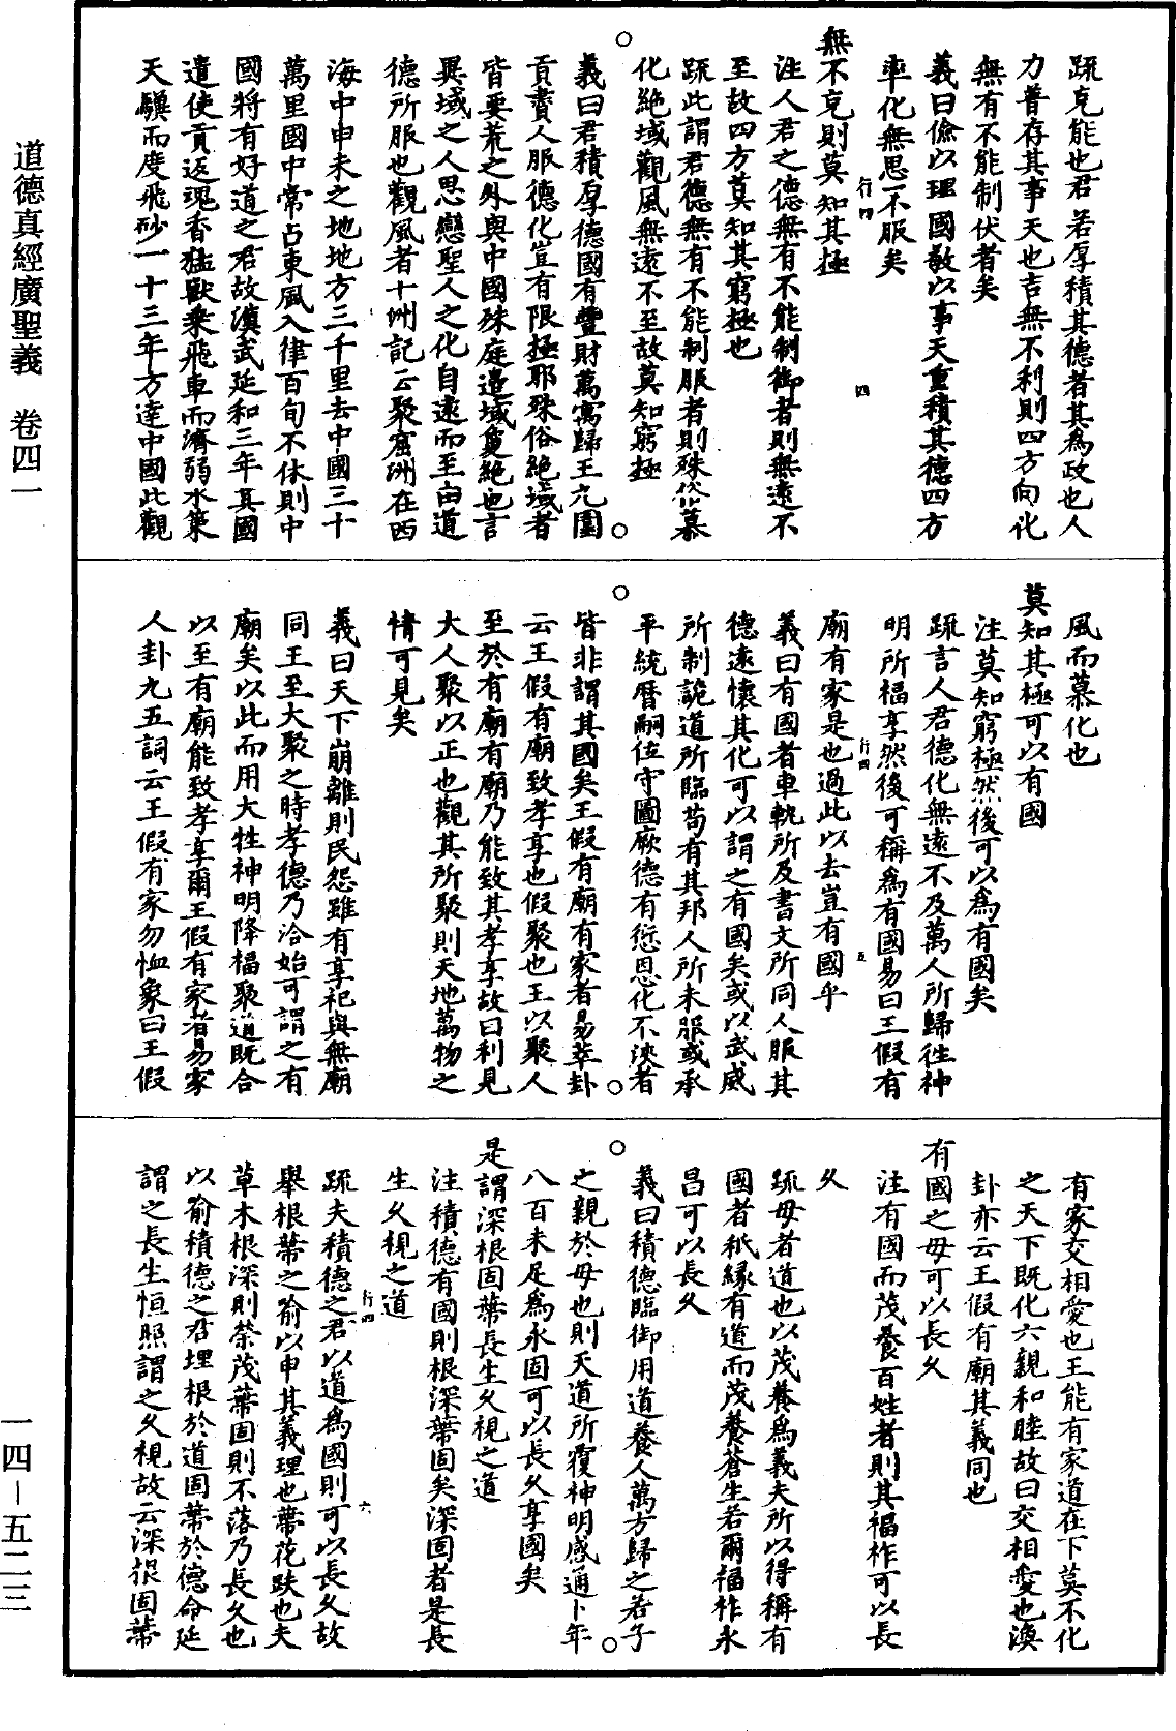 道德真經廣聖義　卷四一
疏克能也君若厚積其德者其為政也人
力普存其事天也吉無不利則四方向化
無有不能制伏者矣
義曰儉以理國敬以事天重積其德四方
率化無思不服矣
無不克則莫知其極
注人君之德無有不能制御者則無遠不
至故四方莫知其窮極也
疏此謂君德無有不能制服者則殊俗慕
化絶域觀風無遠不至故莫知窮極
義曰君積厚德國有豐財萬寓歸王九圍
貢賮人服德化豈有限極耶殊俗絶域者
皆要荒之外與中國殊庭邉域敻絶也言
異域之人思戀聖人之化自遠而至由道
德所服也觀風者十洲記云聚窟洲在西
海中申未之地地方三千里去中國三十
萬里國中常占東風入律百旬不休則中
國將有好道之君故漢武延和三年其國
遣使貢返瑰香猛獸乗飛車而濟弱水策
天驥而度飛砂一十三年方達中國此觀
風而慕化也
莫知其極可以有國
注莫知窮極然後可以為有國矣
疏言人君德化無遠不及萬人所歸往神
明所福享然後可稱為有國易曰王假有
廟有家是也過此以去豈有國乎
義曰有國者車軌所及書文所同人服其
德遠懷其化可以謂之有國矣或以武威
所制詭道所臨苟有其邦人所未服或承
平統曆嗣位守圖厥德有愆恩化不浹者
皆非謂其國矣王假有廟有家者易萃卦
云王假有廟致孝享也假聚也王以聚人
至於有廟有廟乃能致其孝享故曰利見
大人聚以正也觀其所聚則天地萬物之
情可見矣
義曰天下崩離則民怨雖有享祀與無廟
同王至大聚之時孝德乃洽始可謂之有
廟矣以此而用大牲神明降福聚道既合
以至有廟能致孝享爾王假有家者易家
人卦九五詞云王假有家勿恤象曰王假
有家交相愛也王能有家道在下莫不化
之天下既化六親和睦故曰交相愛也渙
卦亦云王假有廟其義同也
有國之母可以長久
注有國而茂養百姓者則其福祚可以長
久
疏母者道也以茂養為義夫所以得稱有
國者秖緣有道而茂養蒼生若爾福祚永
昌可以長久
義曰積德臨御用道養人萬方歸之若子
之親於母也則天道所覆神明感通卜年
八百未足為永固可以長久享國矣
是謂深根固蔕長生久視之道
注積德有國則根深蔕固矣深固者是長
生久視之道
疏夫積德之君以道為國則可以長久故
舉根蔕之喻以申其義理也蔕花趺也夫
草木根深則榮茂蔕固則不落乃長久也
以喻積德之君埋根於道固蔕於德命延
謂之長生恒照謂之久視故云深根固蔕
一四－五二三